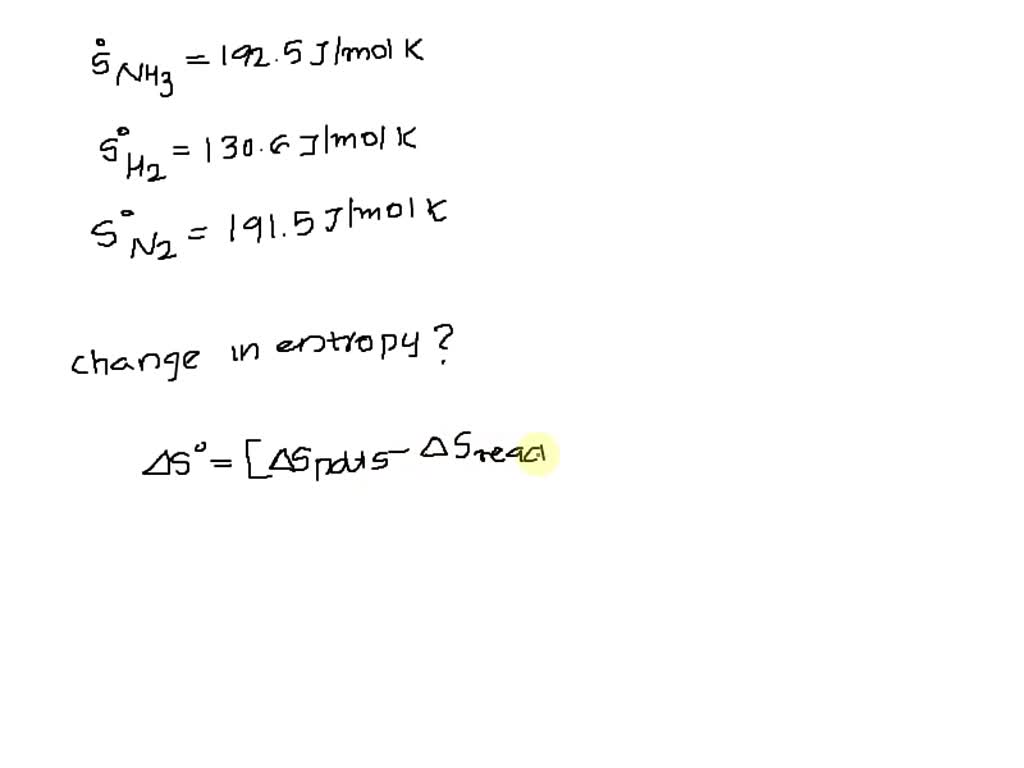 S°NH3 = 192.5 J/mol K
S°H2 = 130.6 J/mol K
S°N2 = 191.5 J/mol K
change in entropy?
ΔS° = [ΔSpdts - ΔSreac